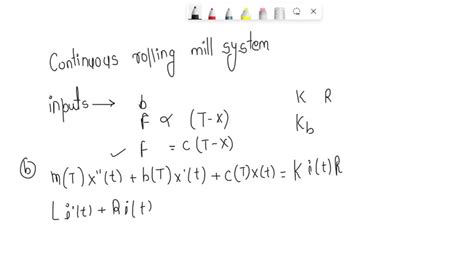 Continuous rolling mill system
inputs → b K R
F ∝ (T-x) K_b
✓ F = c(T-x)
(b) m(T)x''(t) + b(T)x'(t) + c(T)x(t) = K i(t)R
L i'(t) + Ri(t)